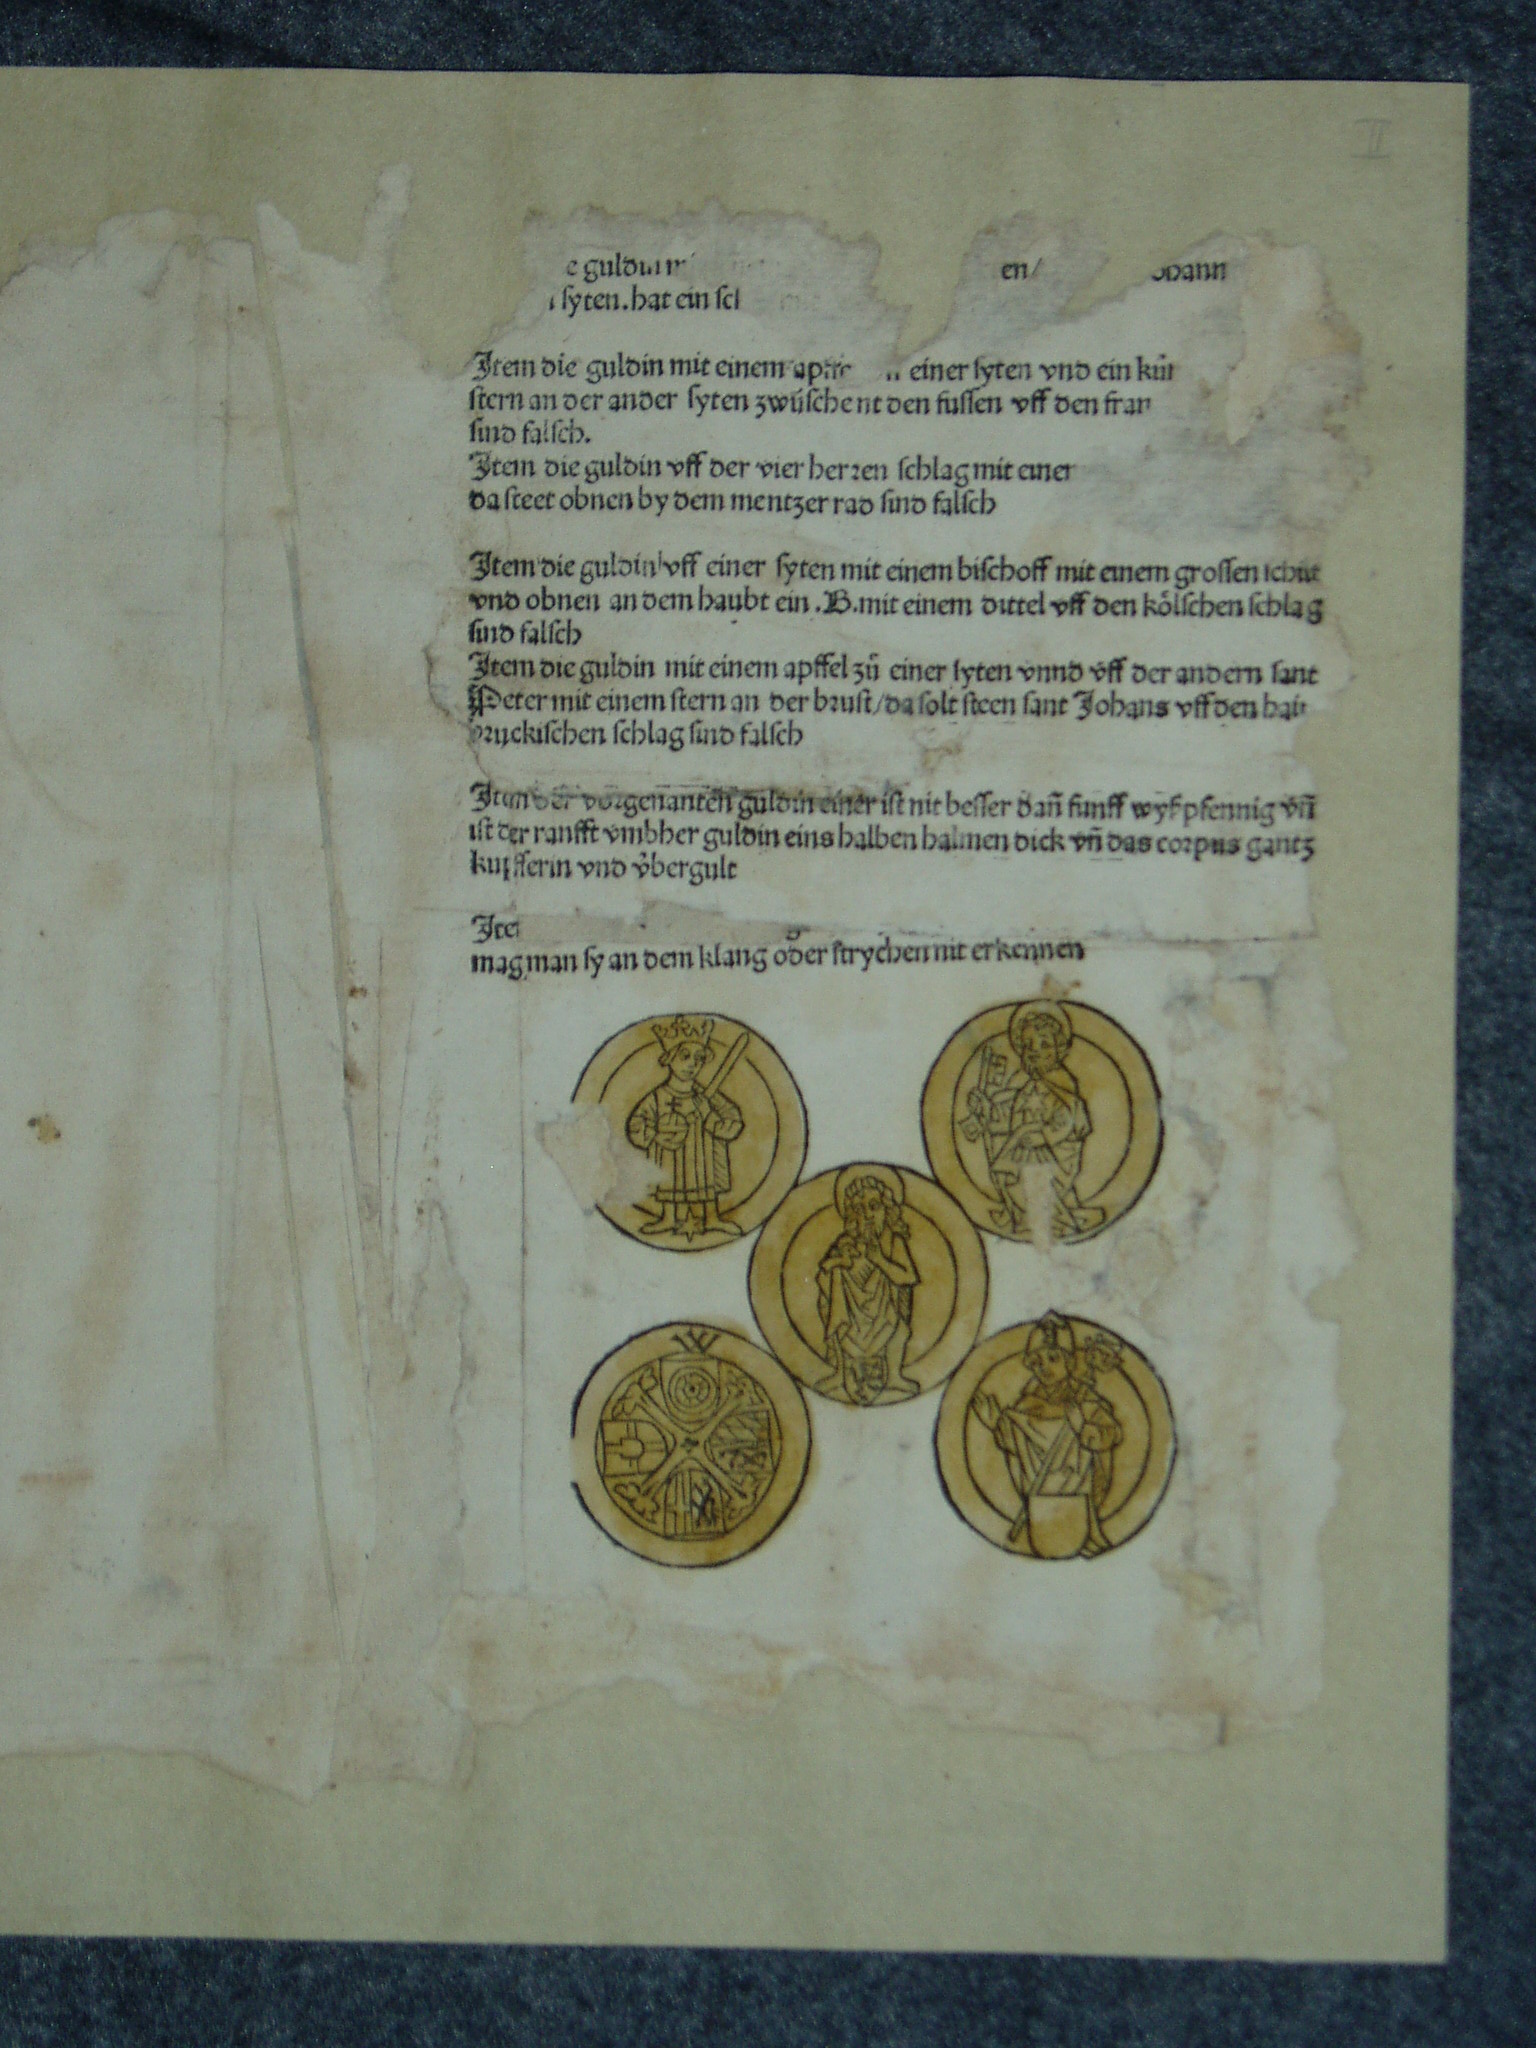 e guldin en/ ohann
syten. hat ein
Item die guldin mit einem einer syten vnd ein
stern an der ander syten zwüschent den fussen vff den
sind falsch.
Item die guldin vff der vier herren schlag mit einer
da steet obnen by dem mentzer rad sind falsch
Item die guldin vff einer syten mit einem bischoff mit einem grossen schilt
vnd obnen an dem haubt ein .B. mit einem dittel vff den kölschen schlag
sind falsch
Item die guldin mit einem apffel zů einer syten vnnd vff der andern sant
Peter mit einem stern an der brust/da solt steen sant Johans vff den
bruckischen schlag sind falsch
Item der vorgenanten guldin einer ist nit besser dañ funff wyßpfennig vñ
ist der ranfft vmbher guldin eins halben halmen dick vñ das corpus gantz
kupfferin vnd vbergult
mag man sy an dem klang oder strychen nit erkennen
W
II